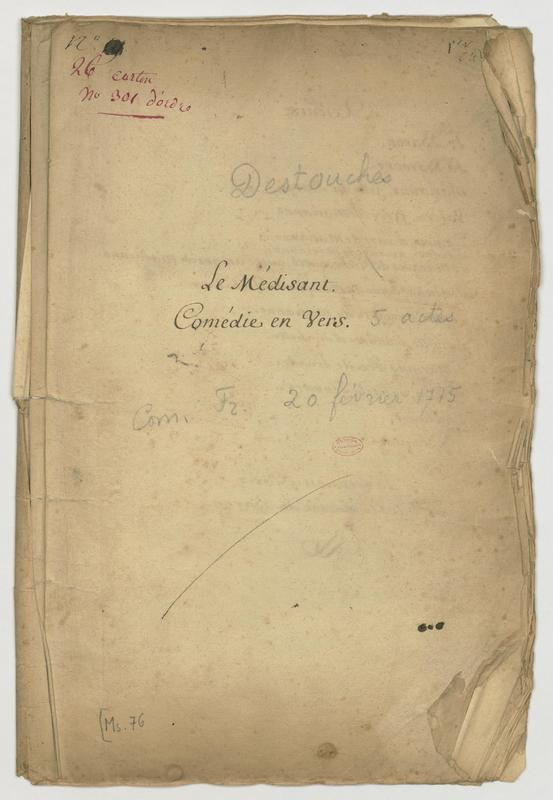 12e
26e carton
No 301 d'ordre
Destouches
Le Médisant.
Comédie en Vers. 5 actes
Com. Fr. 20 février 1775
[Ms. 76